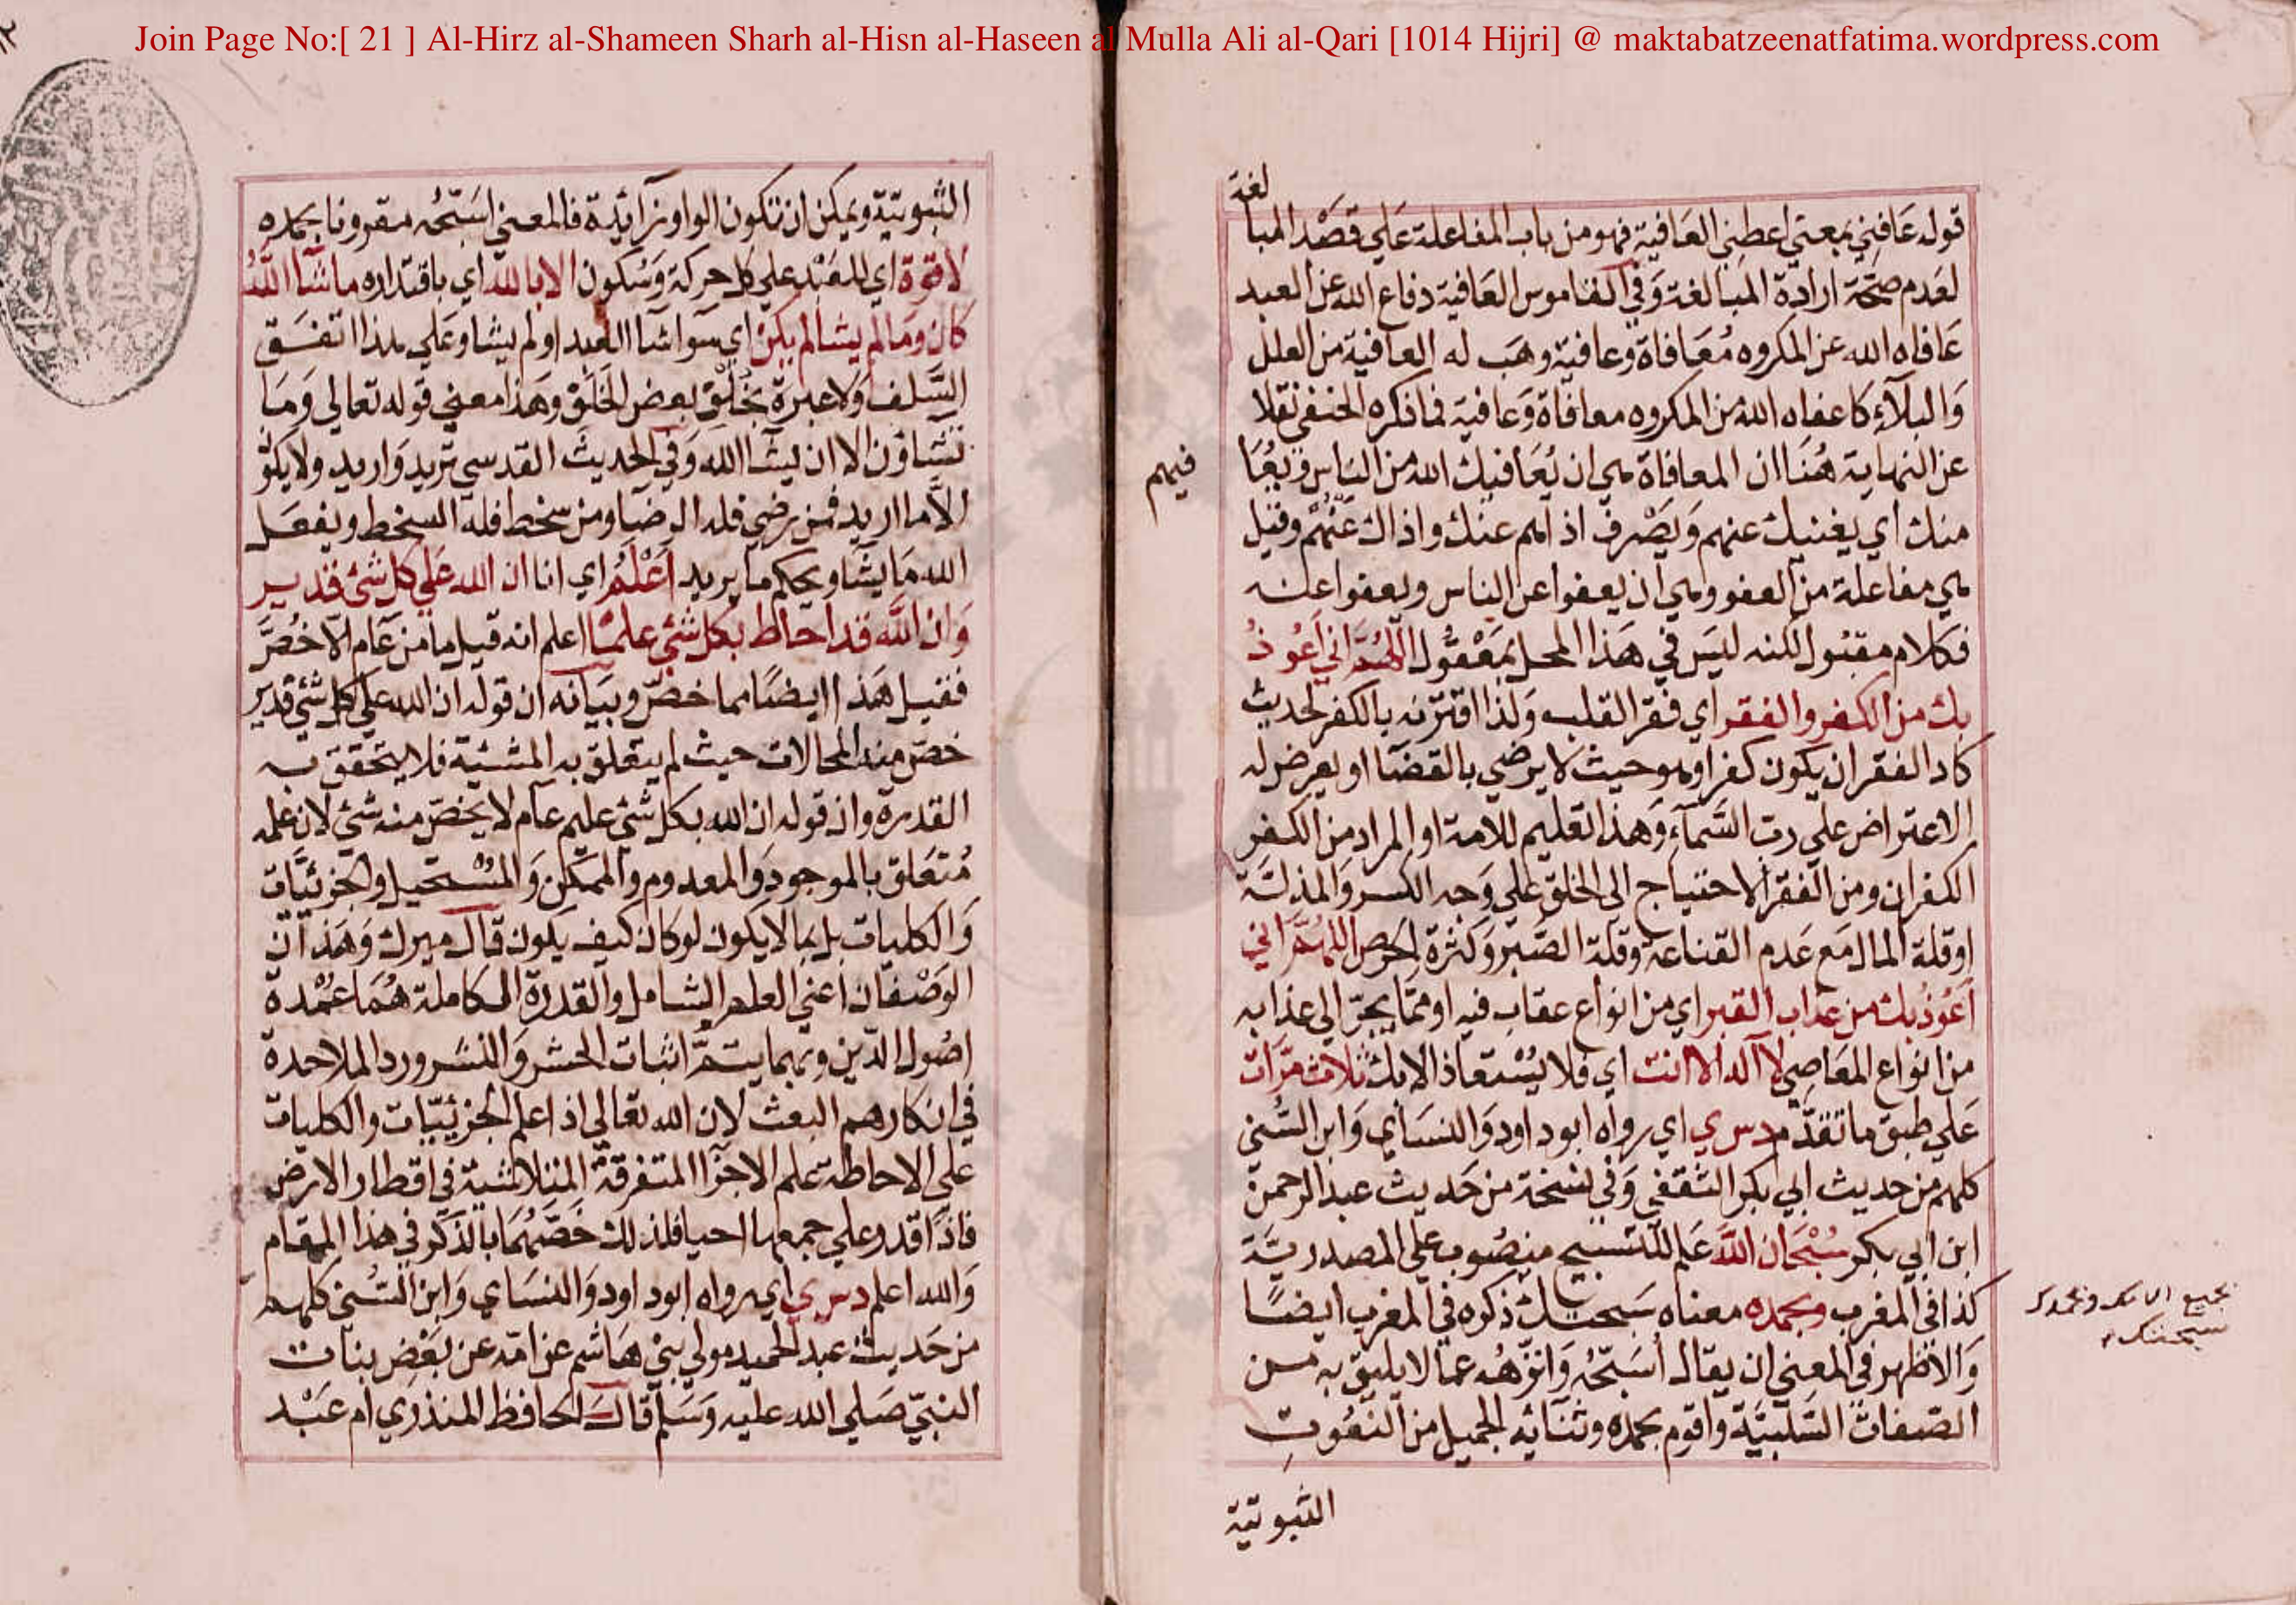 Join Page No:[ 21 ] Al-Hirz al-Shameen Sharh al-Hisn al-Haseen al Mulla Ali al-Qari [1014 Hijri] @ maktabatzeenatfatima.wordpress.com
قوله عَافِنِي بمعني اعطِني العَافية فهو من باب المفاعلة عَلي قَصْد المبا
لغة
لعَدم صحّة ارادة المبالغة وَفي القاموس العَافية دفاع الله عن العبد
عَافاه الله عن المكروه مُعَافاة وعافية وهَب له العافية من العلل
وَالبلآء كاعفاه الله من المكروه معافاة وَعافية فما ذكره الحنفي نقلا
عن النهاية هُنَا ان المعافاة هي ان يُعَافيك الله من الناس وَيُعَا
فيهم
منك اي يغنيك عنهم وَيَصْرف اذاهم عنك واذاك عَنْهُمْ وقيل
هي مفاعلة من العفو وهي ان يعفوا عن الناس ويعفوا عنه
فكلام مقبُول لكنه ليسَ في هَذا المحل بمَعْقُول اللهُمَّ اني اَعُوذُ
بك من الكفر والفقر اي فقر القلب وَلذا اقترنه بالكفر لحديث
كاد الفقر ان يكون كفرا وهو حيث لا يرضي بالقضآ او يعرض له
الاعتراض علي رب السَّمآء وَهذا تعليم للامة او المراد من الكفر
الكفران ومن الفقر الاحتياج الي الخلق علي وَجه الكسر وَالمذلّة
او قلة المال مَع عَدم القناعة وقلة الصَّبر وَكثرة الحرص اللهُمَّ اني
اَعُوذُ بك من عذاب القبر اي من انواع عقاب فيه او ممّا يجرّ الي عذابه
من انواع المعَاصِي لا آله الا انت اي فلا يُسْتعاذ الا بك ثلاث مَرّات
عَلي طبق ما تقدّم د س ي اي رواه ابو داود وَالنسَاي وَابن السُّني
كلهم من حديث ابي بكر الثقفي وَفي نسخة من حَديث عبد الرحمن
ابن ابي بكر سُبْحَان الله عَلم للتسبيح منصُوب علي المصدريَّة
كذا في المغرب وبحمده معناه سَبحتك ذكره في المغرب ايضًا
سبحتك
وَالاظهر في المعني ان يقال اُسَبّحُه وَانزّهُه عما لا يليق به من
الصّفات السَّلبيَّة واقوم بحمده وثنآئه الجميل من النعُوتِ
الثبوتية
الثبوتيّة ويمكن ان تكون الواو زآئدة فالمعني اسَبّحُه مقرونا بحمده
لا قوّة اي للعَبْد علي كل حركة وَسُكون الا بالله اي باقتداره ما شآ اللهُ
كان وَما لم يشا لم يكنْ اي سوآ شآ العبد او لم يشا وعَلي هذا اتفَق
السَّلف وَلا عبرة بخُلْق بعض الخلَق وهَذا معني قوله تعالي وَمَا
تشاؤن الا ان يشآ الله وَفي الحديث القدسي تريد وَاريد ولا يكوُن
الاَّ ما اريد فمن رضي فله الرضَا ومن سخط فله السخط ويفعَل
الله مَا يشَا ويحكم ما يريد اَعْلَمُ اي انا ان الله عَلي كل شئ قدير
وَان اللّه قد احاط بكل شئ علمًا اعلم انه قيل ما من عَام الاّ خُصَّ
فقيل هَذا ايضًا مما خصّ وبيَانه ان قوله ان الله علي كل شئ قدير
خصّ منه المحالات حيث لم يتعلق به المشئية فلا يتحقق به
القدرة وان قوله ان الله بكل شئ عليم عام لا يخصّ منه شئ لان علمه
مُتعَلق بالموجود وَالمعدوم والممكن وَالمسْتحيل والجزئيَّات
وَالكليات بل بما لا يكون لو كان كيف يكون قال ميرك وَهَذان
الوَصْفان اعني العلم الشامل وَالقدرة الكاملة هُمَا عُمْدة
اصُول الدّين وبهما يتمّ اثبات الحشر وَالنشر ورد الملاحدة
في انكارهم البعث لان الله تعالي اذا علم الجزئيّات والكليات
علي الاحاطة علم الاجزآ المتفرقة المتلاشية في اقطار الارض
فاذا قدر علي جمعها احيا فلذلك خَصّهُمَا بالذكر في هذا المقام
وَالله اعلم د س ي اي رواه ابو داود وَالنسَاي وَابن السُّني كلهم
من حَديث عبد الحميد مولي بني هَاشم عن امّه عن بَعْض بنات
النبيّ صَلي الله عليه وَسَلم قال الحافظ المنذري ام عَبْد